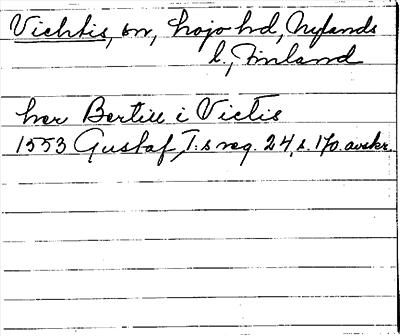 Vichtis, sn, Lojo hd, Nylands
l., Finland
her Bertill i Victis
1553 Gustaf I:s reg. 24, s. 170. avskr.